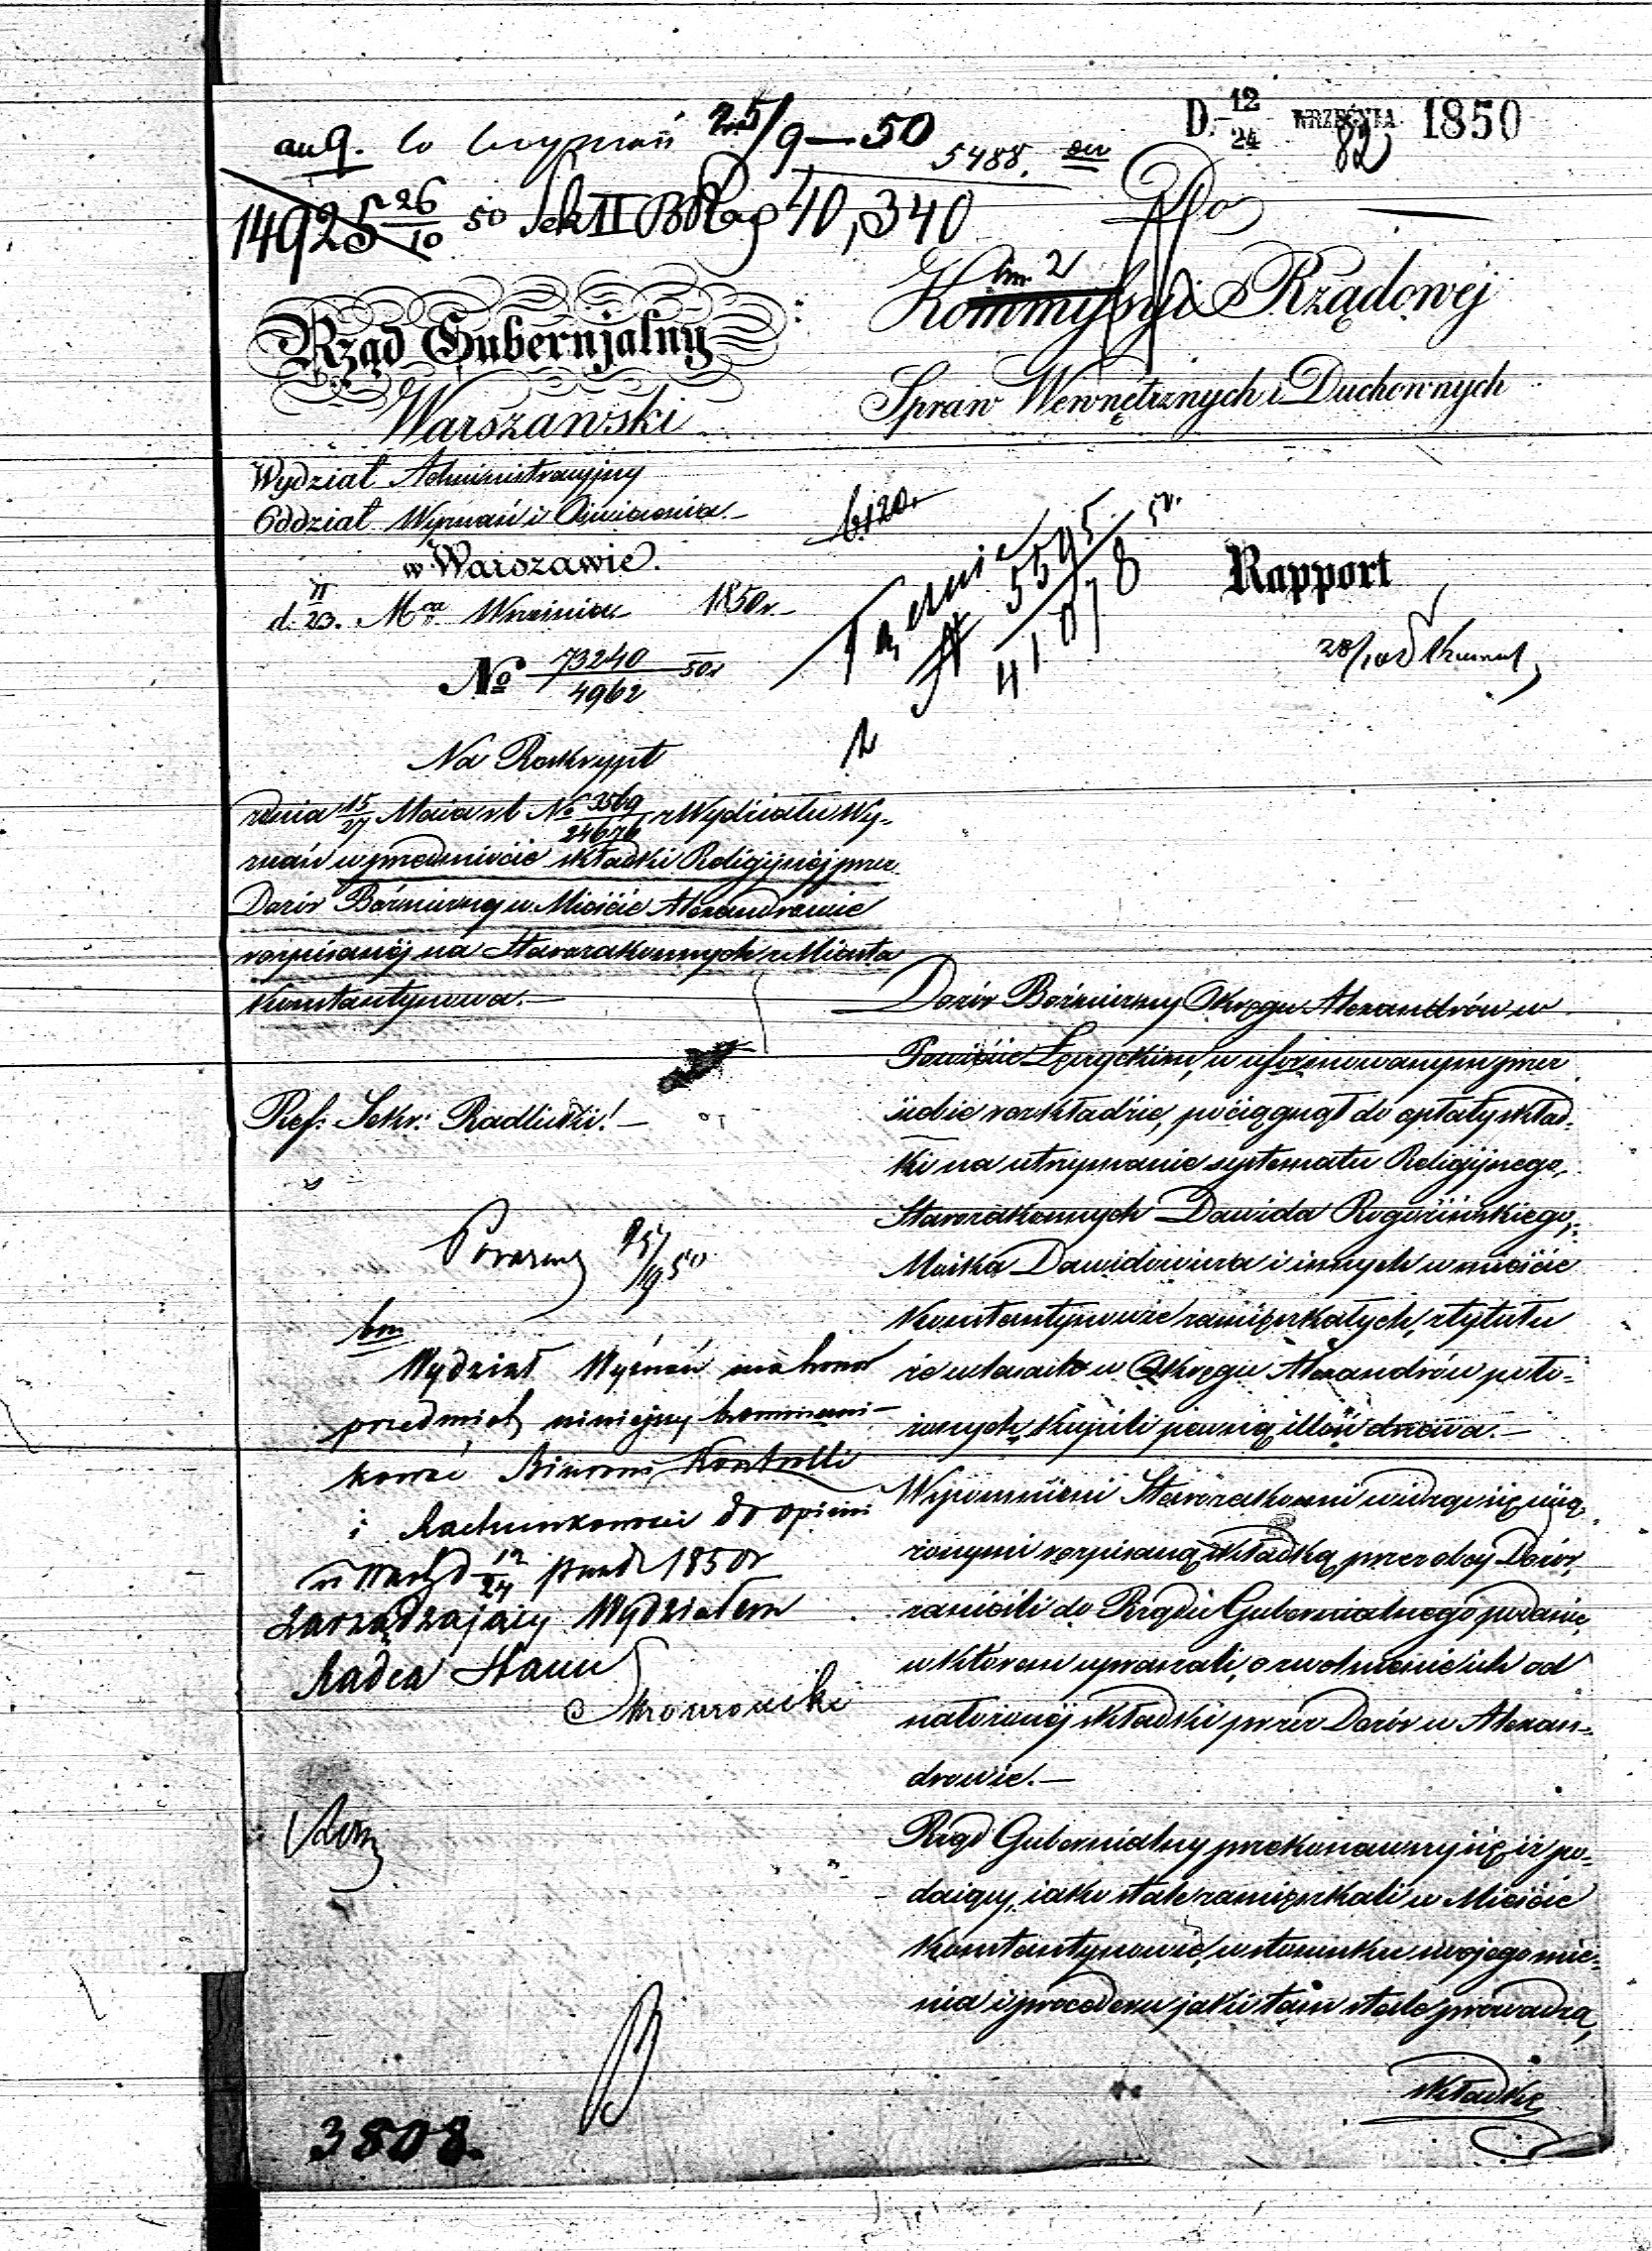 D. 12/24 WRZEŚNIA 1850
82
25/9 — 50
5488.
14925 26/10 50 Sek II 40,340
Do
Kommyssyi Rządowej
Spraw Wewnętrznych i Duchownych
Rząd Gubernjalny
Warszawski
Wydział Administracyjny
Oddział Wyznań i Oświecenia.
w Warszawie.
d. 11/23. Mca Września 1850 r.
No 73240/4962 50 r
5595
41078
Rapport
Na Reskrypt
z dnia 15/27 Maia r. b. No 3569/24676 z Wydziału Wy-
znań w przedmiocie składki Religijnéj przez
Dozór Bóżniczny w Mieście Alexandrowie
rozpisanéj na Starozakonnych z Miasta
Konstantynowa.—
Ref: Sekr: Radlicki!—
Dozór Bóżniczny Okręgu Alexandrów w
Powiecie Łęczyckim, w uformowanym przez
siebie rozkładzie, pociągnął do opłaty skład-
ki na utrzymanie systematu Religijnego,
Starozakonnych Dawida Rogozińskiego,
Mośka Dawidowicza i innych w mieście
Konstantynowie zamięszkałych, z tytułu
że w lasach w Okręgu Alexandrów poło-
żonych, kupili pewną illość drzewa.—
Wspomnieni Starozakonni widząc się uciąż-
żonymi rozpisaną składką przez obcy Dozór,
zanieśli do Rządu Gubernialnego podanie,
w którem upraszali, o uwolnienie ich od
nałożonéj składki przez Dozór w Alexan-
drowie.—
Rząd Gubernialny przekonawszy się iż po-
daiący, iako stale zamięszkali w Mieście
Konstantynowie, w stosunku swojego mie-
nia i procederu jaki tam stale prowadzą,
składkę
25/9 50
Wydział Wyznań ma honor
przedmiot niniejszy kommuni-
kować Biurowi Kontrolli
i Rachunkowości do opinii
w Warsz d 12/24 1850 r
Zarządzający Wydziałem
Radca Stanu
3808.